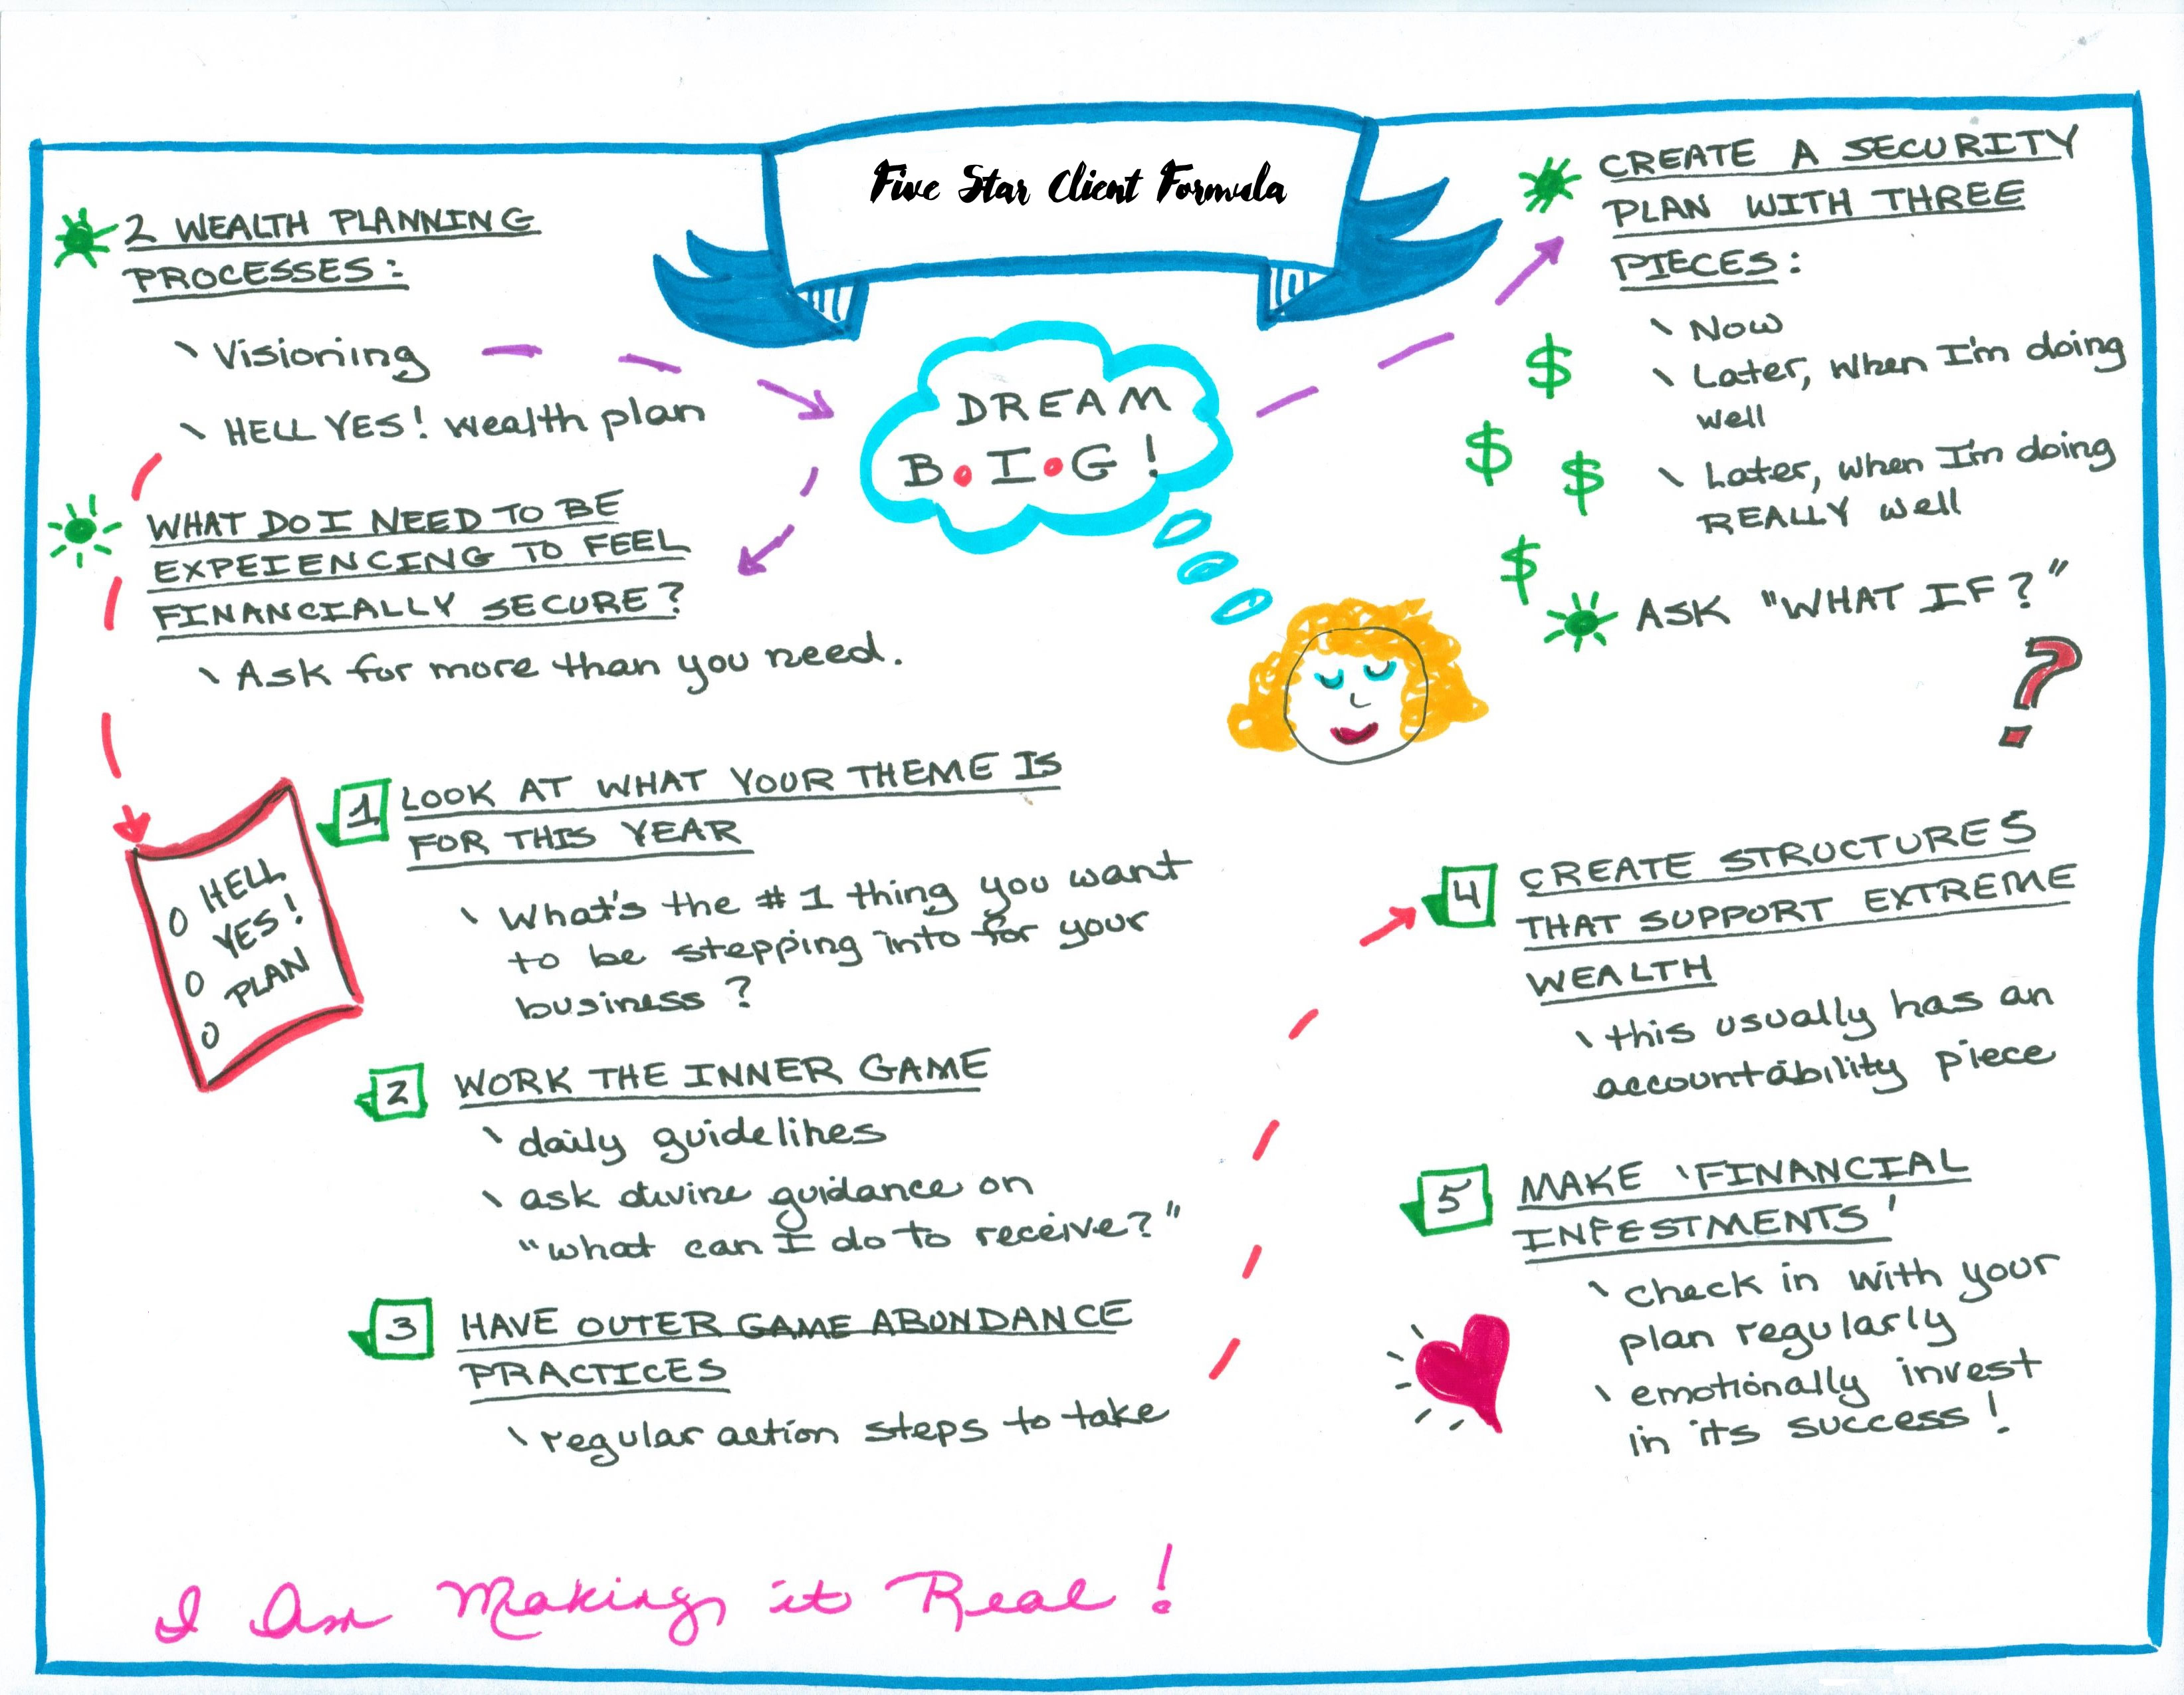 Five Star Client Formula
2 WEALTH PLANNING
PROCESSES:
\ Visioning
\ HELL YES! wealth plan
DREAM
B.I.G!
WHAT DO I NEED TO BE
EXPEIENCING TO FEEL
FINANCIALLY SECURE?
\ Ask for more than you need.
CREATE A SECURITY
PLAN WITH THREE
PIECES:
\ Now
\ Later, when I'm doing
well
\ Later, when I'm doing
REALLY well
$
$
$
$
ASK "WHAT IF?"
?
HELL
YES!
PLAN
1 LOOK AT WHAT YOUR THEME IS
FOR THIS YEAR
\ What's the #1 thing you want
to be stepping into for your
business?
2 WORK THE INNER GAME
\ daily guidelines
\ ask divine guidance on
"what can I do to receive?"
3 HAVE OUTER GAME ABUNDANCE
PRACTICES
\ regular action steps to take
4 CREATE STRUCTURES
THAT SUPPORT EXTREME
WEALTH
\ this usually has an
accountability piece
5 MAKE 'FINANCIAL
INFESTMENTS'
\ check in with your
plan regularly
\ emotionally invest
in its success!
I Am Making it Real!